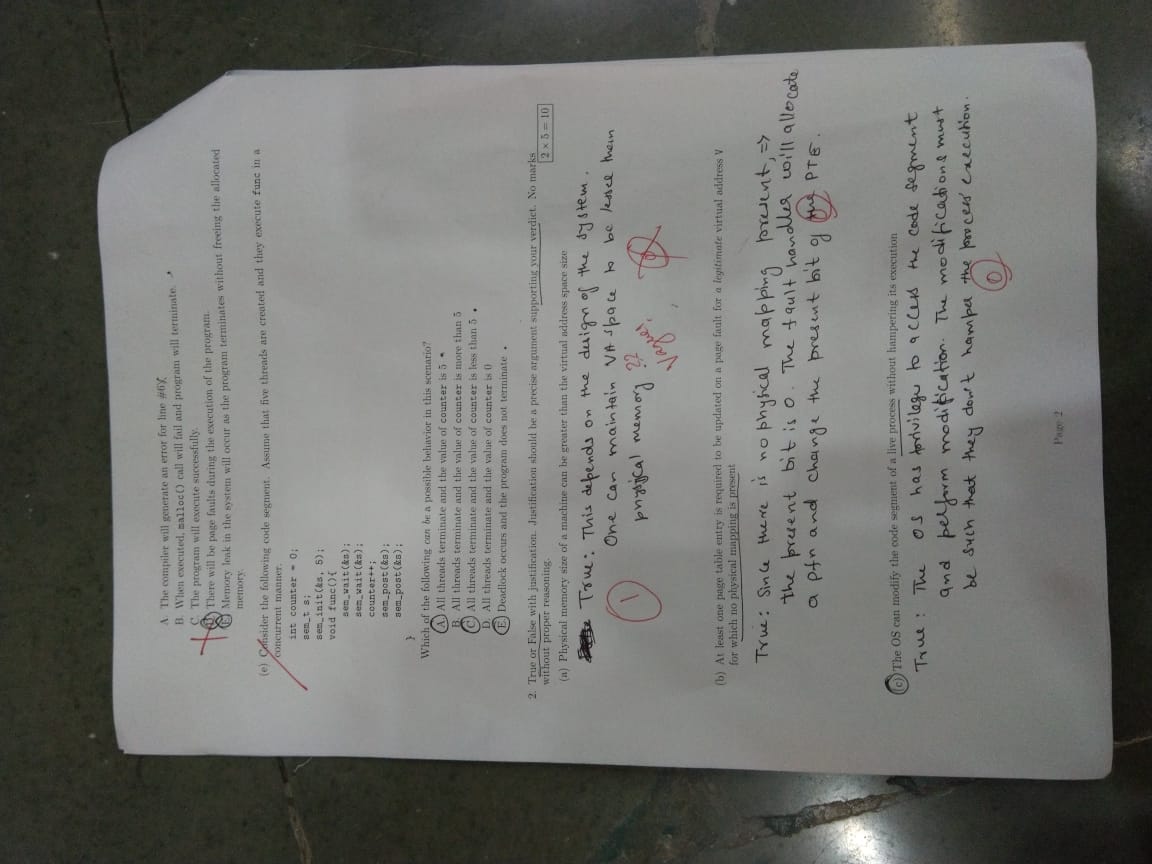 A. The compiler will generate an error for line #6
B. When executed, malloc() call will fail and program will terminate.
C. The program will execute successfully.
D. There will be page faults during the execution of the program.
E. Memory leak in the system will occur as the program terminates without freeing the allocated
memory.
(e) Consider the following code segment. Assume that five threads are created and they execute func in a
concurrent manner.
int counter = 0;
sem_t s;
sem_init(&s, 5);
void func(){
sem_wait(&s);
sem_wait(&s);
counter++;
sem_post(&s);
sem_post(&s);
}
Which of the following can be a possible behavior in this scenario?
A. All threads terminate and the value of counter is 5
B. All threads terminate and the value of counter is more than 5
C. All threads terminate and the value of counter is less than 5
D. All threads terminate and the value of counter is 0
E. Deadlock occurs and the program does not terminate
2. True or False with justification. Justification should be a precise argument supporting your verdict. No marks
without proper reasoning. 2 × 5 = 10
(a) Physical memory size of a machine can be greater than the virtual address space size
True: This depends on the design of the system.
One can maintain VA space to be less than
physical memory ??
1
Vague.
(b) At least one page table entry is required to be updated on a page fault for a legitimate virtual address V
for which no physical mapping is present
True: Since there is no physical mapping present, =>
the present bit is 0. The fault handler will allocate
a pfn and change the present bit of the PTE.
(c) The OS can modify the code segment of a live process without hampering its execution
True: The OS has privilege to access the code segment
and perform modification. The modifications must
be such that they don't hamper the process' execution.
0
Page 2